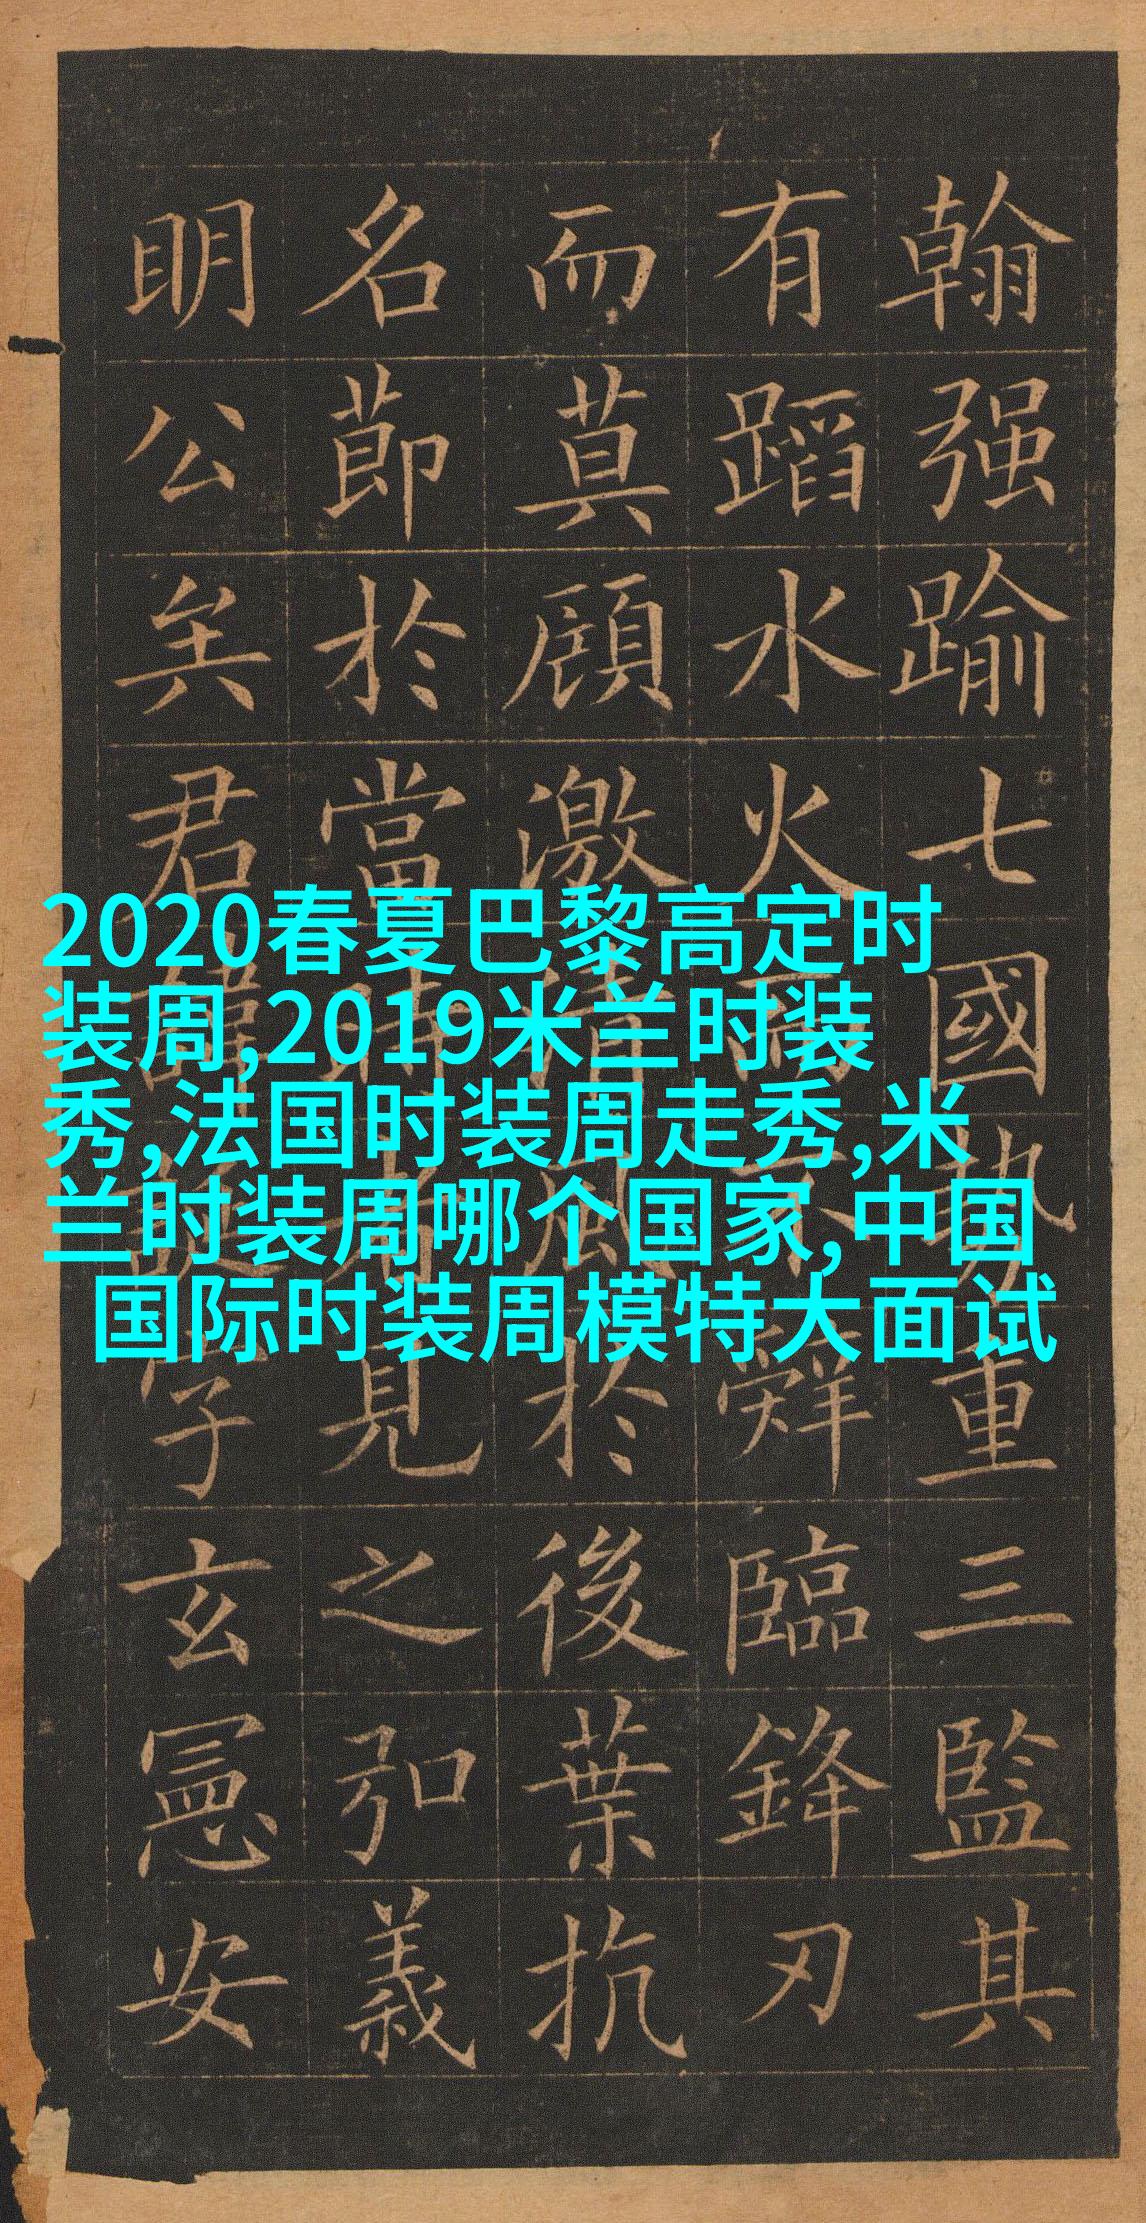 翰强踰七國勢重三監其
有蹈水火不辭臨鋒刃
而莫顧激清風於後葉抗
名節於當時見之弘義
明公矣君誕字玄憲安
2020春夏巴黎高定时
装周,2019米兰时装
秀,法国时装周走秀,米
兰时装周哪个国家,中国
国际时装周模特大面试